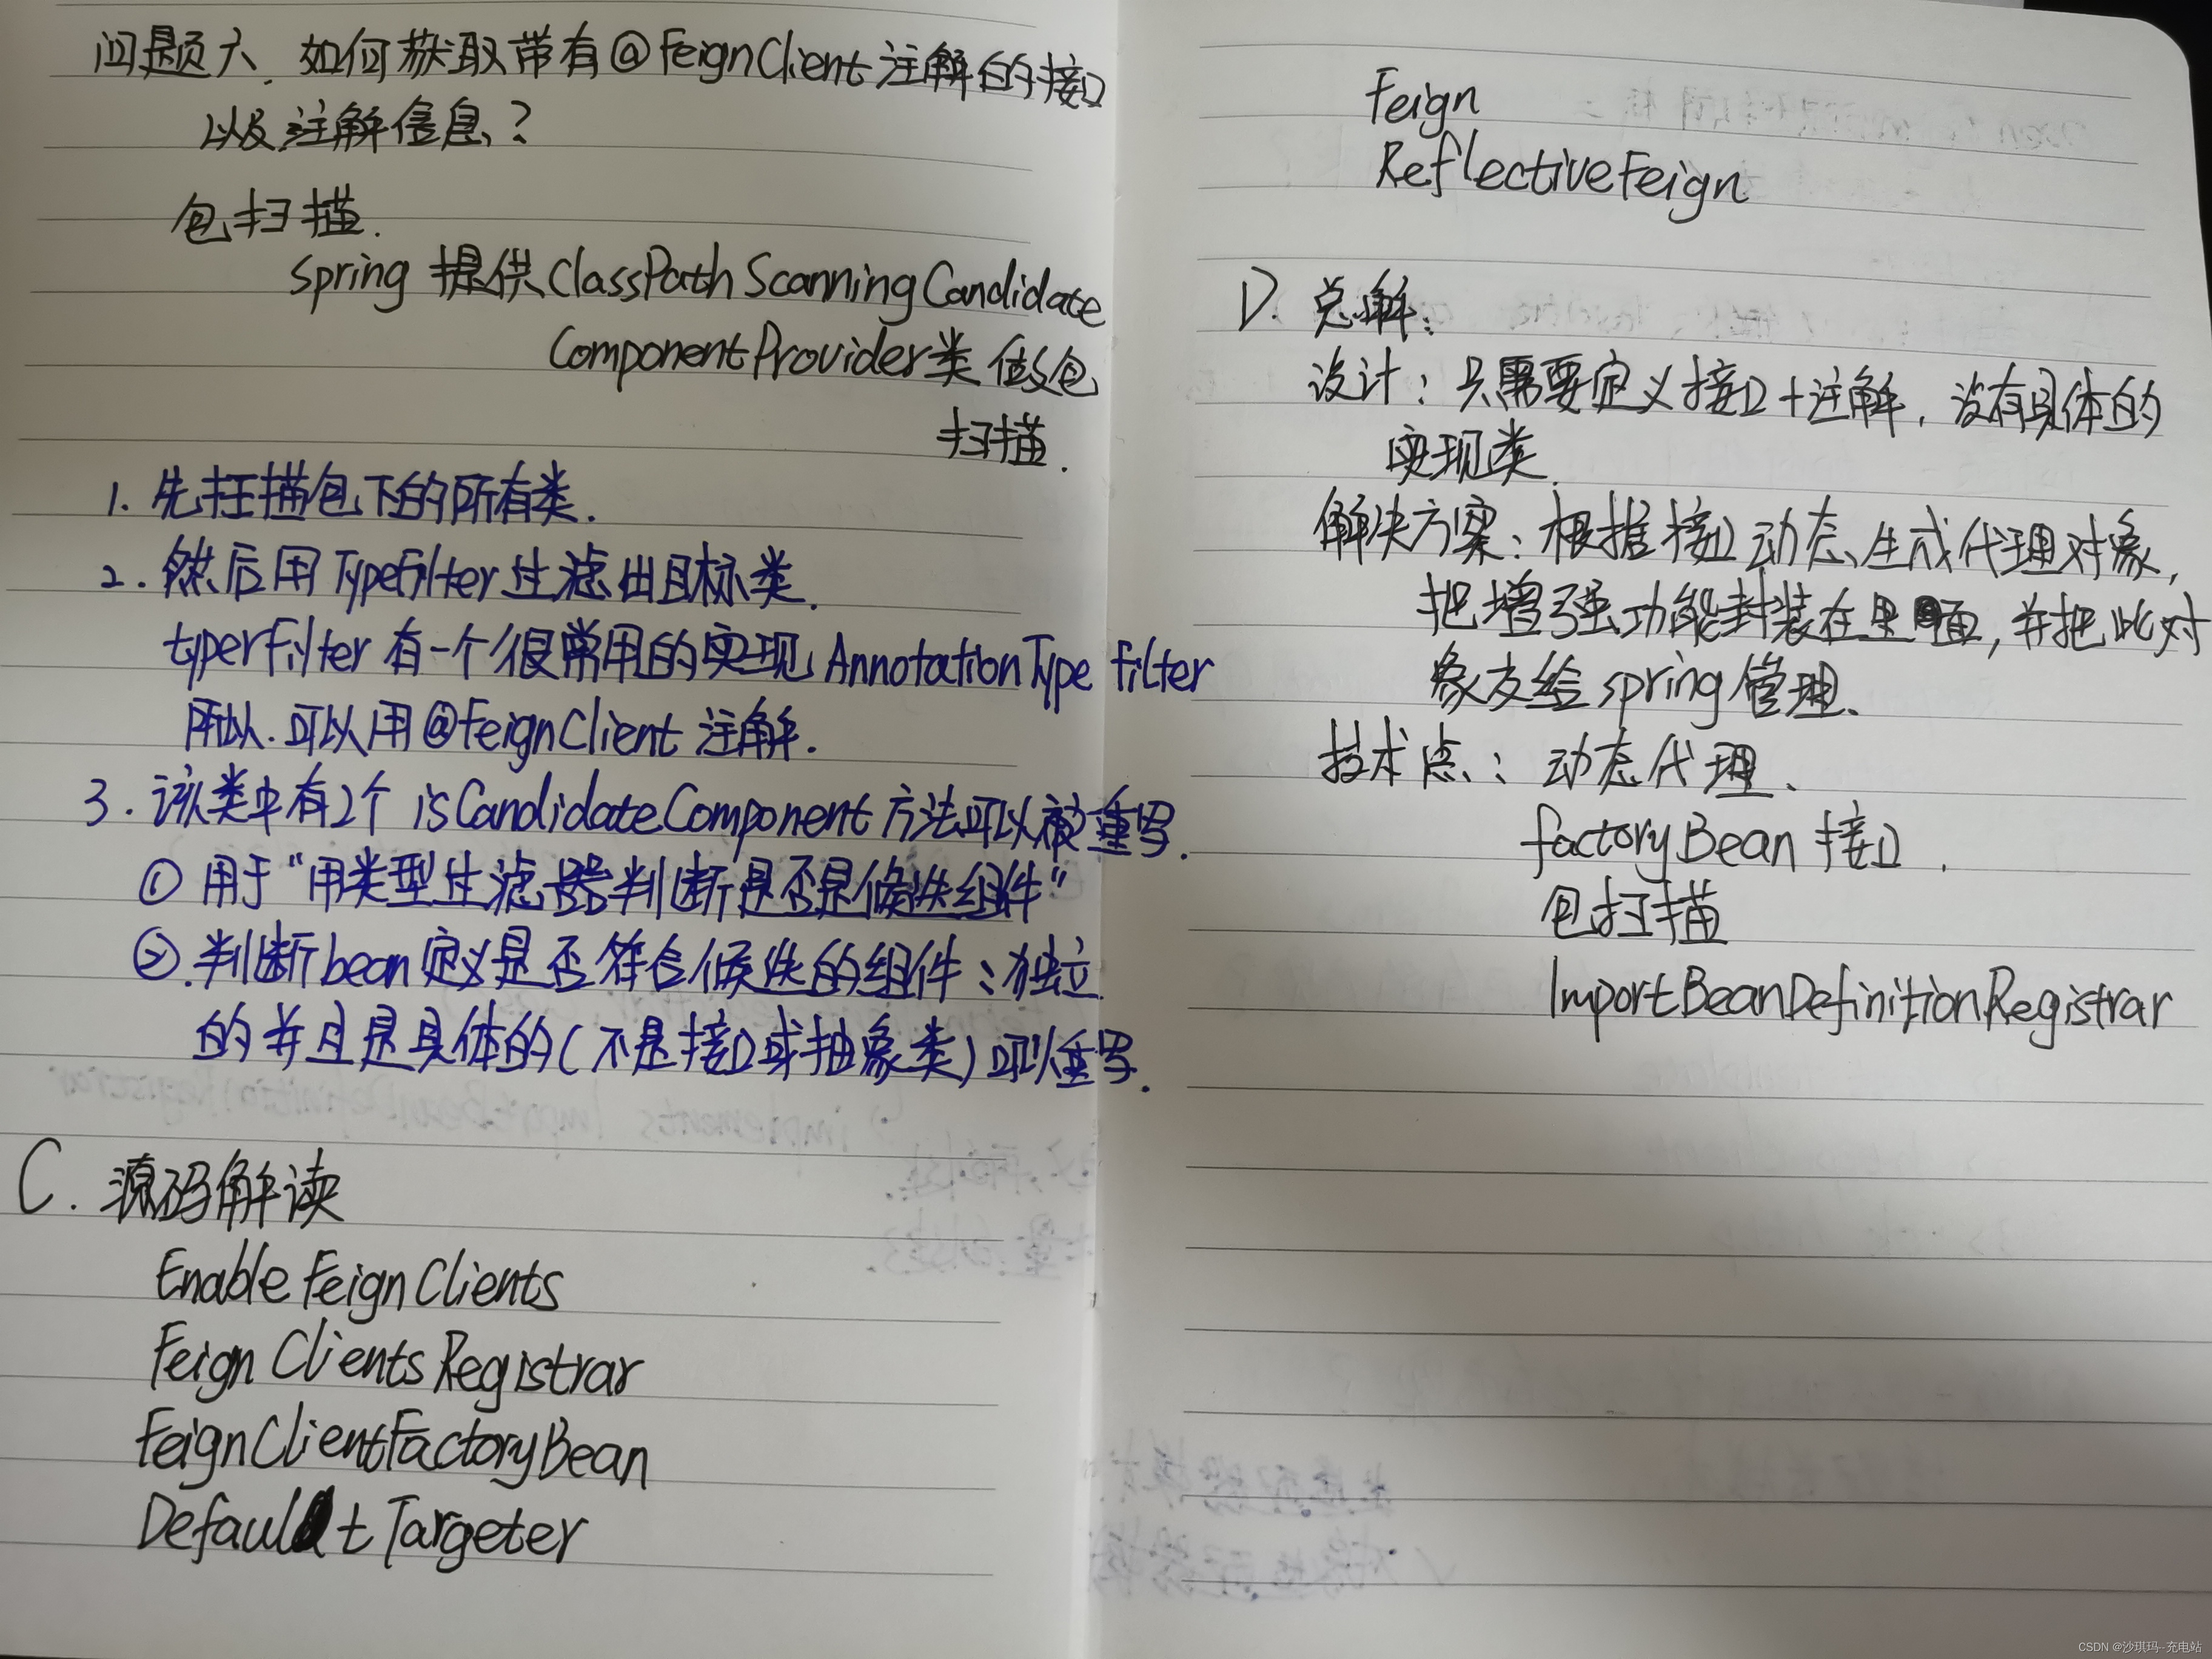 问题六、如何获取带有@FeignClient注解的接口
以及注解信息?
包扫描.
spring 提供ClassPathScanningCandidate
ComponentProvider类 做包
扫描.
1. 先扫描包下的所有类.
2. 然后用TypeFilter过滤出目标类.
typerFilter 有一个很常用的实现 AnnotationTypeFilter
所以.可以用@FeignClient 注解.
3. 该类中有2个 isCandidateComponent 方法可以被重写.
① 用于“用类型过滤器判断是否是候选组件”
②.判断bean定义是否符合候选的组件:独立
的并且是具体的(不是接口或抽象类)可以重写.
C. 源码解读
EnableFeignClients
FeignClientsRegistrar
FeignClientFactoryBean
DefaultTargeter
Feign
ReflectiveFeign
D. 总解:
设计:只需要定义接口+注解,没有具体的
实现类.
解决方案:根据接口动态生成代理对象,
把增强功能封装在里面,并把此对
象交给spring管理.
技术点:动态代理.
factoryBean 接口.
包扫描
ImportBeanDefinitionRegistrar
CSDN @沙琪玛--充电站